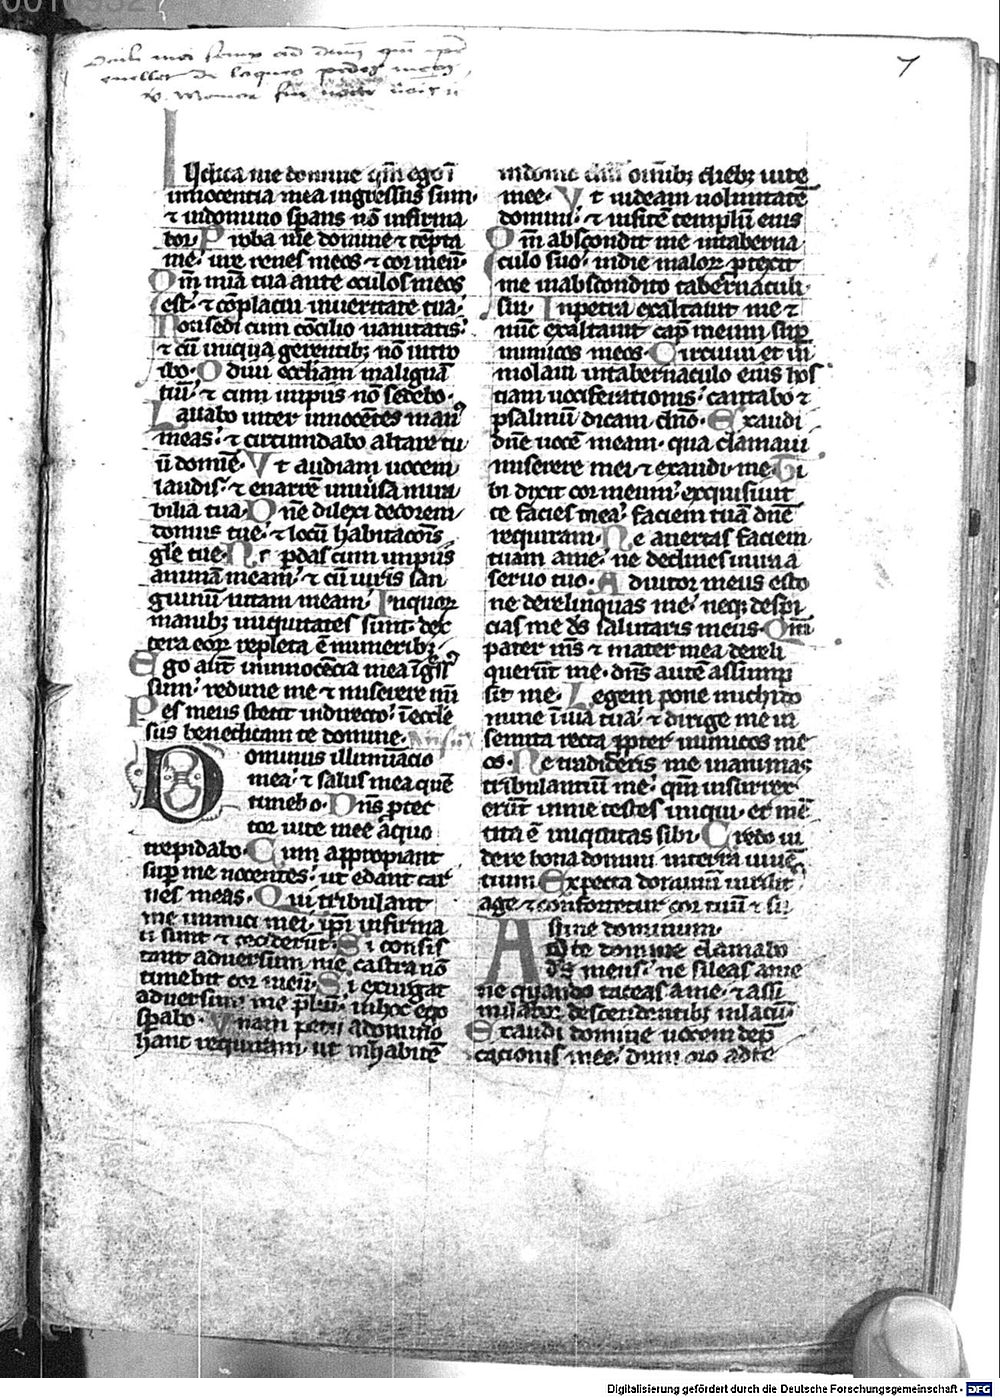 Oculi mei semper ad dnm qm ipse
euellet de laqueo pedes meos
7
Iudica me domine qm̄ ego ī
innocentia mea ingressus sum·
⁊ in domino sꝑans nō infirma
bor· Proba me domine ⁊ tēpta
me· ure renes meos ⁊ cor meū·
Qm̄ mīa tua ante oculos meos
est· ⁊ cōplacui in ueritate tua·
Non sedi cum cōcilio uanitatis·
⁊ cū iniqua gerentibꝫ nō intro
ibo· Odiui eccliam malignā
tiū· ⁊ cum impiis nō sedebo·
Lauabo inter innocētes man⁹
meas· ⁊ circumdabo altare tu
ū domīe· Vt audiam uocem
laudis· ⁊ enarrē uniuīsa mira
bilia tua· Dn̄e dilexi decorem
domus tue· ⁊ locū habitacōis
gl̄e tue· Ne ꝑdas cum impiis
animā meam· ⁊ cū uiris san
guinū uitam meam· In quoꝝ
manibꝫ iniquitates sunt· dex
tera eoꝝ repleta ē muneribꝫ·
Ego aūt in innocēcia mea īgss⁹
sum· redime me ⁊ miserere mī
Pes meus stetit in directo· ī eccle
siis benedicam te domine·
Dominus illumīacio
mea· ⁊ salus mea quē
timebo· Dn̄s ꝓtec
tor uite mee a quo
trepidabo· Cum appropiant
suꝑ me nocentes· ut edant car
nes meas· Qui tribulant
me inimici mei· ip̄i infirma
ti sunt ⁊ ceciderūt· Si consis
tant aduersum me castra nō
timebit cor meū· Si exurgat
aduersum me p̄liū· in hoc ego
sꝑabo· Vnam petii a domino
hanc requiram· ut inhabitē
in domo dn̄i omībꝫ diebꝫ uite
mee· Vt uideam uoluntatē
domini· ⁊ uisitē templū eius
Qm̄ abscondit me in taberna
culo suo· in die maloꝝ ꝓtexit
me in abscondito tabernaculi
sui· In petra exaltauit me ⁊
nūc exaltauit cap̄ meum suꝑ
inimicos meos· Circuiui et im
molaui in tabernaculo eius hos
tiam uociferationis· cantabo ⁊
psalmū dicam dn̄o· Exaudi
dn̄e uocē meam· qua clamaui
miserere mei ⁊ exaudi me· Ti
bi dixit cor meum· exquisiuit
te facies mea· faciem tuā dn̄e
requiram· Ne auertas faciem
tuam a me· ne declines in ira a
seruo tuo· Adiutor meus esto
ne derelinquas me· neqꝫ despi
cias me ds̄ salutaris meus· Qm̄
pater m̄s ⁊ mater mea dereli
querūt me· dn̄s autē assump
sit me· Legem pone michi do
mine ī uia tua· ⁊ dirige me in
semita recta ꝓpter inimicos me
os· Ne tradideris me in animas
tribulantiū me· qm̄ insurrex
erūt in me testes iniqui· et mē
tita ē iniquitas sibi· Credo ui
dere bona domini in terra uiuē
tium Expecta dominū uirilit̄
age ⁊ confortetur cor tuū ⁊ su
stine dominum·
Ad te domine clamabo
ds̄ meus· ne sileas a me
ne quando taceas a me· ⁊ assi
milabor descendentibꝫ in lacū·
Exaudi domine uocem dep̄
cacionis mee· dum oro ad te
Digitalisierung gefördert durch die Deutsche Forschungsgemeinschaft - DFG